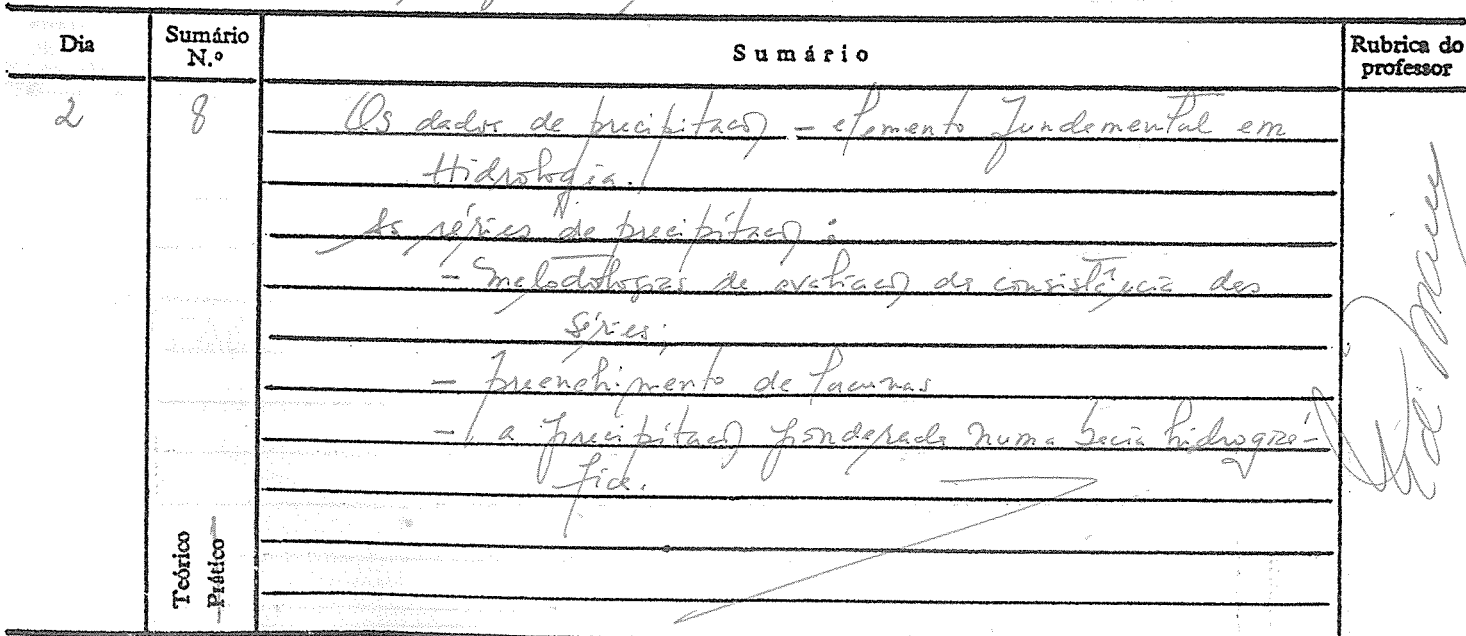 Dia Sumário N.º Sumário Rubrica do professor
2 8 Os dados de precipitação - elemento fundamental em
Hidrologia.
As séries de precipitação:
- metodologias de avaliação da consistência das
séries;
- preenchimento de lacunas
- a precipitação ponderada numa bacia hidrográ-
fica.
Teórico
Prático